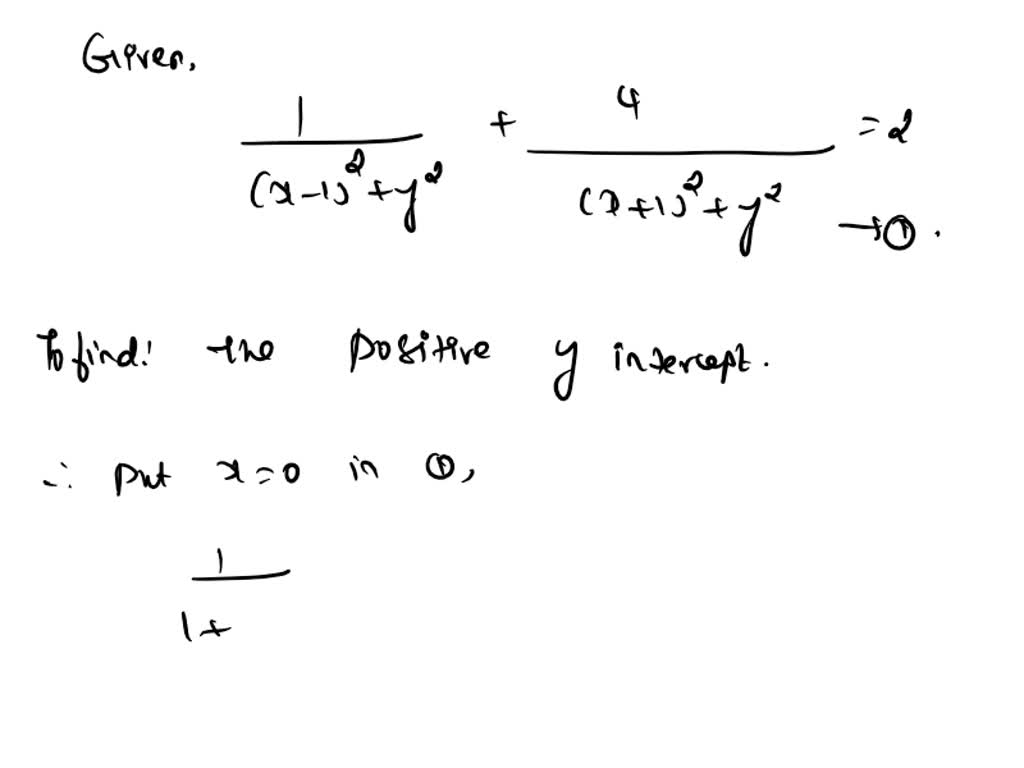 Given,
1/((x-1)²+y²) + 4/((x+1)²+y²) = 2 → ①.
To find: the positive y intercept.
∴ put x=0 in ①,
1/(1+